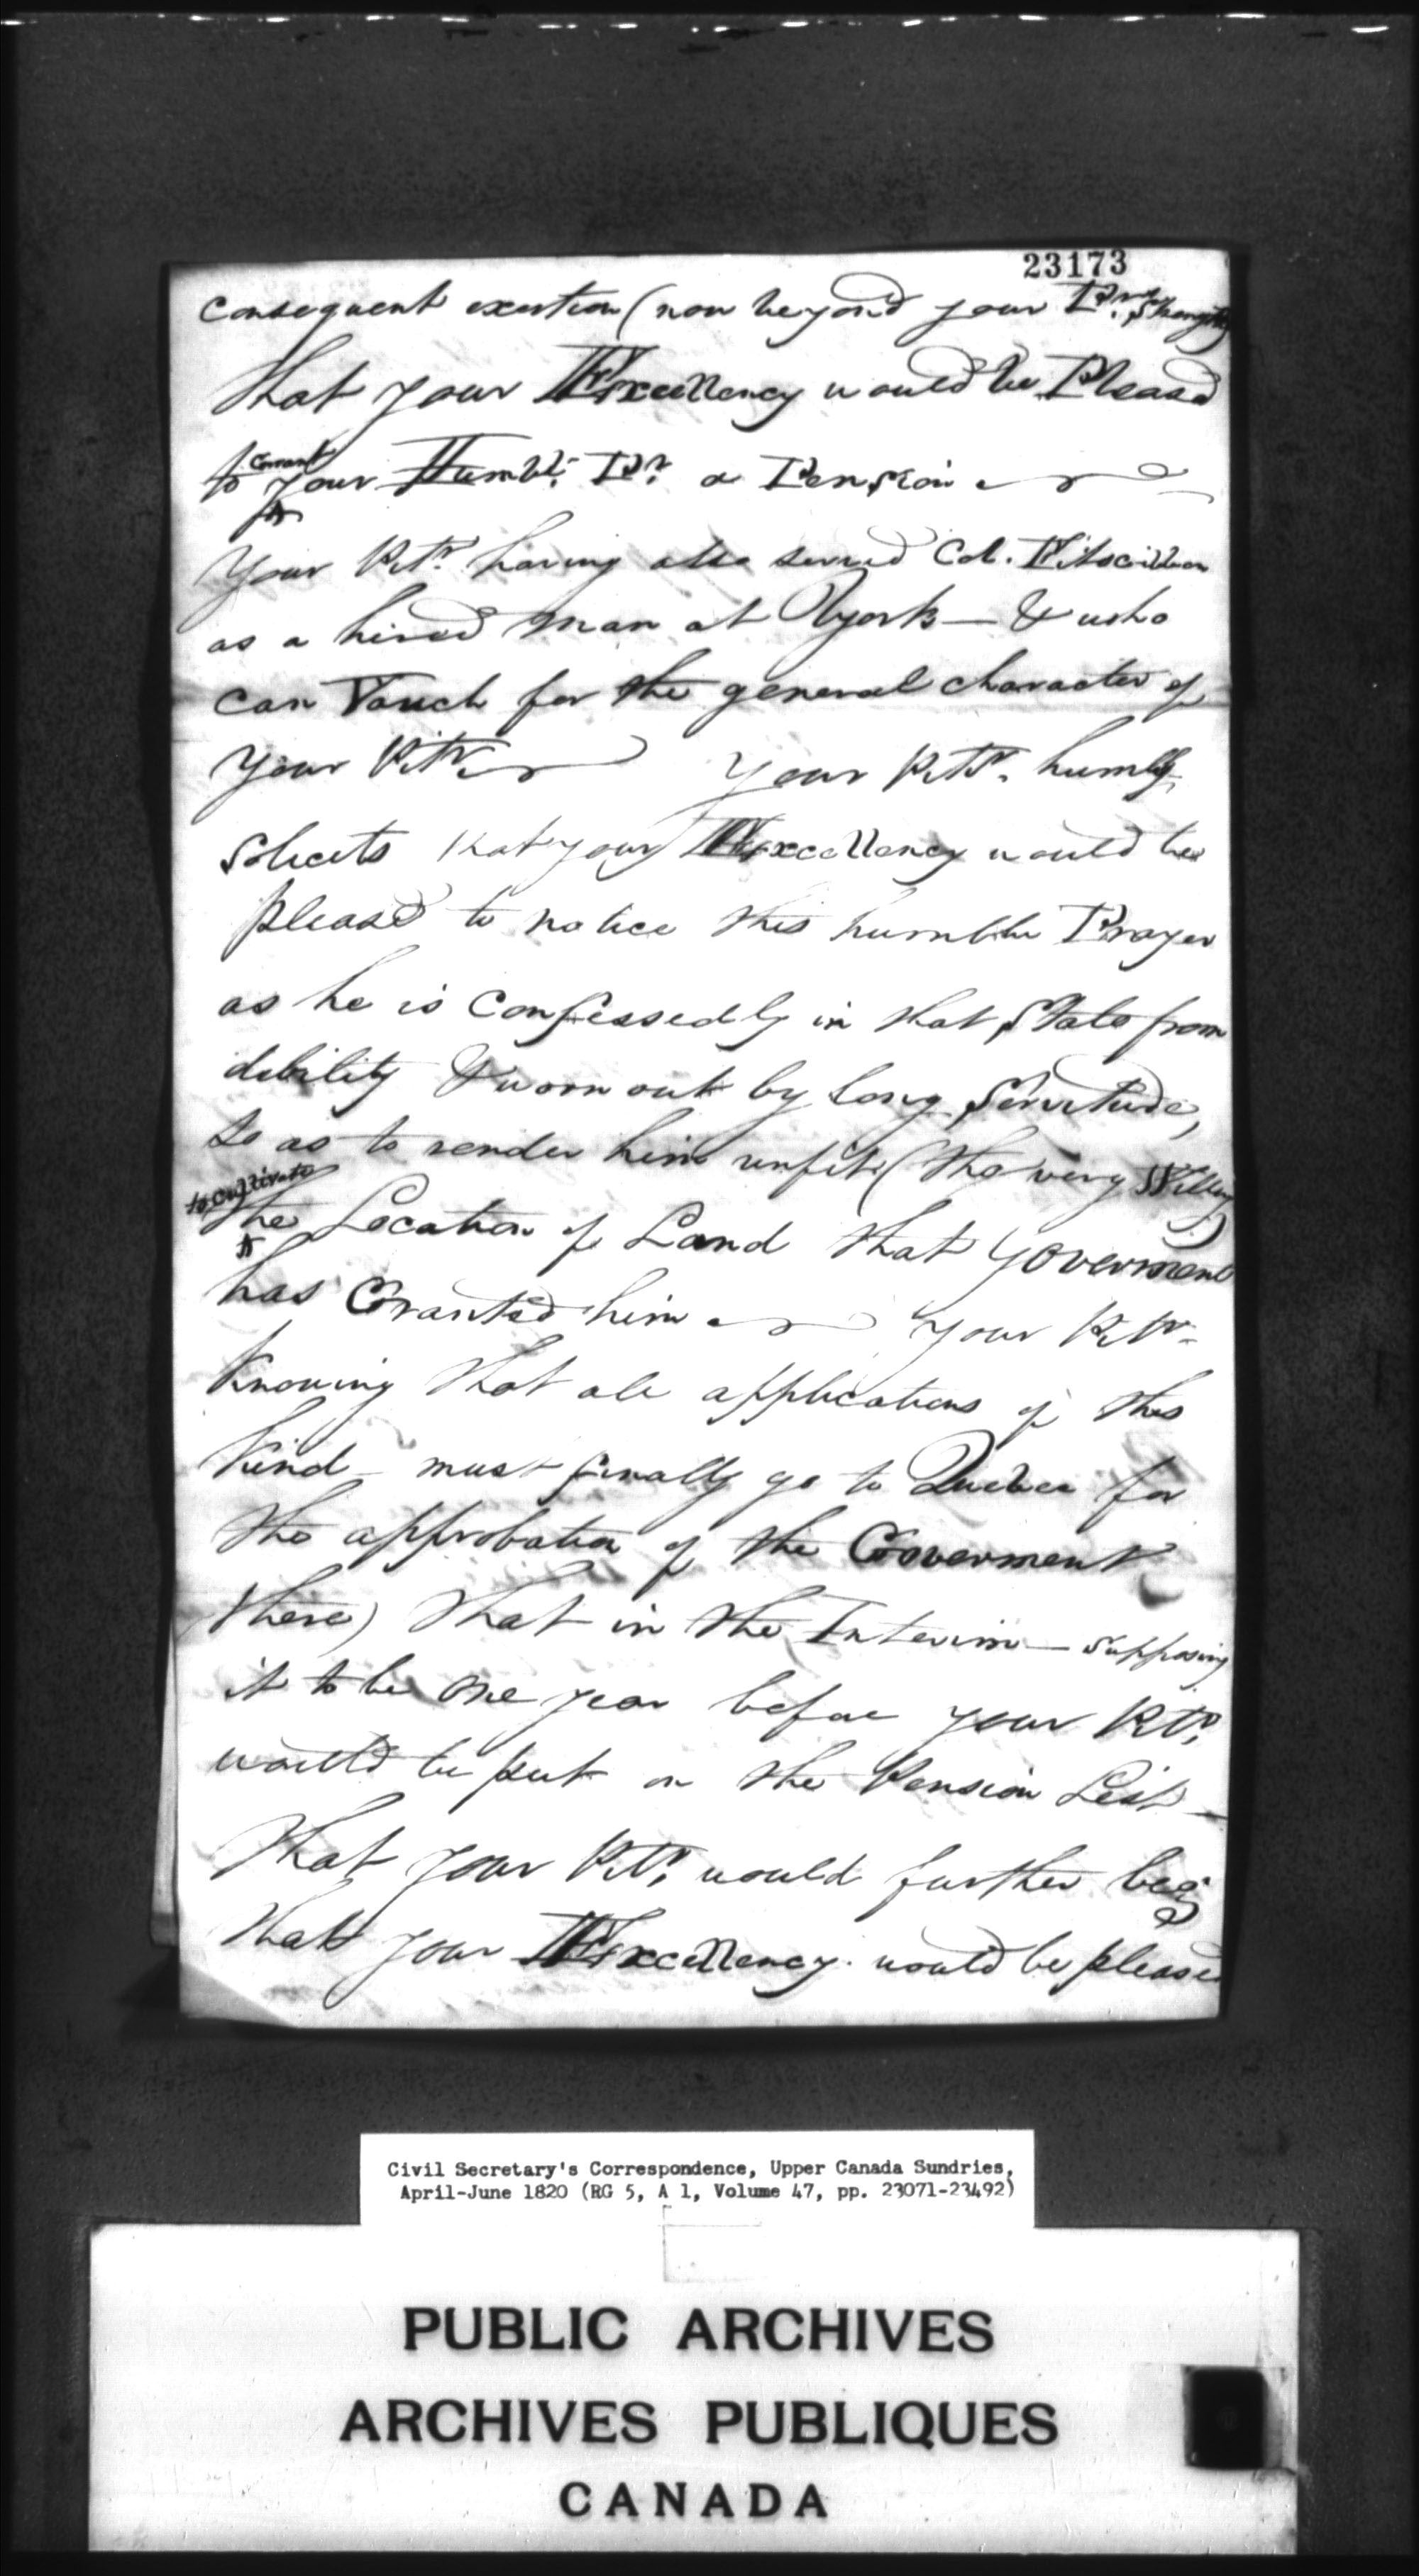 23173
consequent exertion (now beyond your Petrs. Strength)
that your Excellency would be Pleasd
to Grant your Humbl. Pr. a Pension
Your Petr. having also served Col. Fitzgibbon
as a hired man at York — & who
can Vouch for the general character of
your Petr. Your Petr. humbly
Solicits that your Excellency would be
pleasd to notice this humble Prayer
as he is Confessedly in that State from
debility & worn out by long Servitude,
so as to render him unfit (tho very Willing)
to Cultivate the Location of Land that Goverment
has Granted him Your Petr.
knowing that all applications of this
kind must finally go to Quebec for
the approbation of the Goverment
there) that in the Interim — Supposing
it to be one year before your Petr.
would be put on the Pension List —
That your Petr. would further beg
that your Excellency would be pleased
Civil Secretary's Correspondence, Upper Canada Sundries,
April-June 1820 (RG 5, A 1, Volume 47, pp. 23071-23492)
PUBLIC ARCHIVES
ARCHIVES PUBLIQUES
CANADA